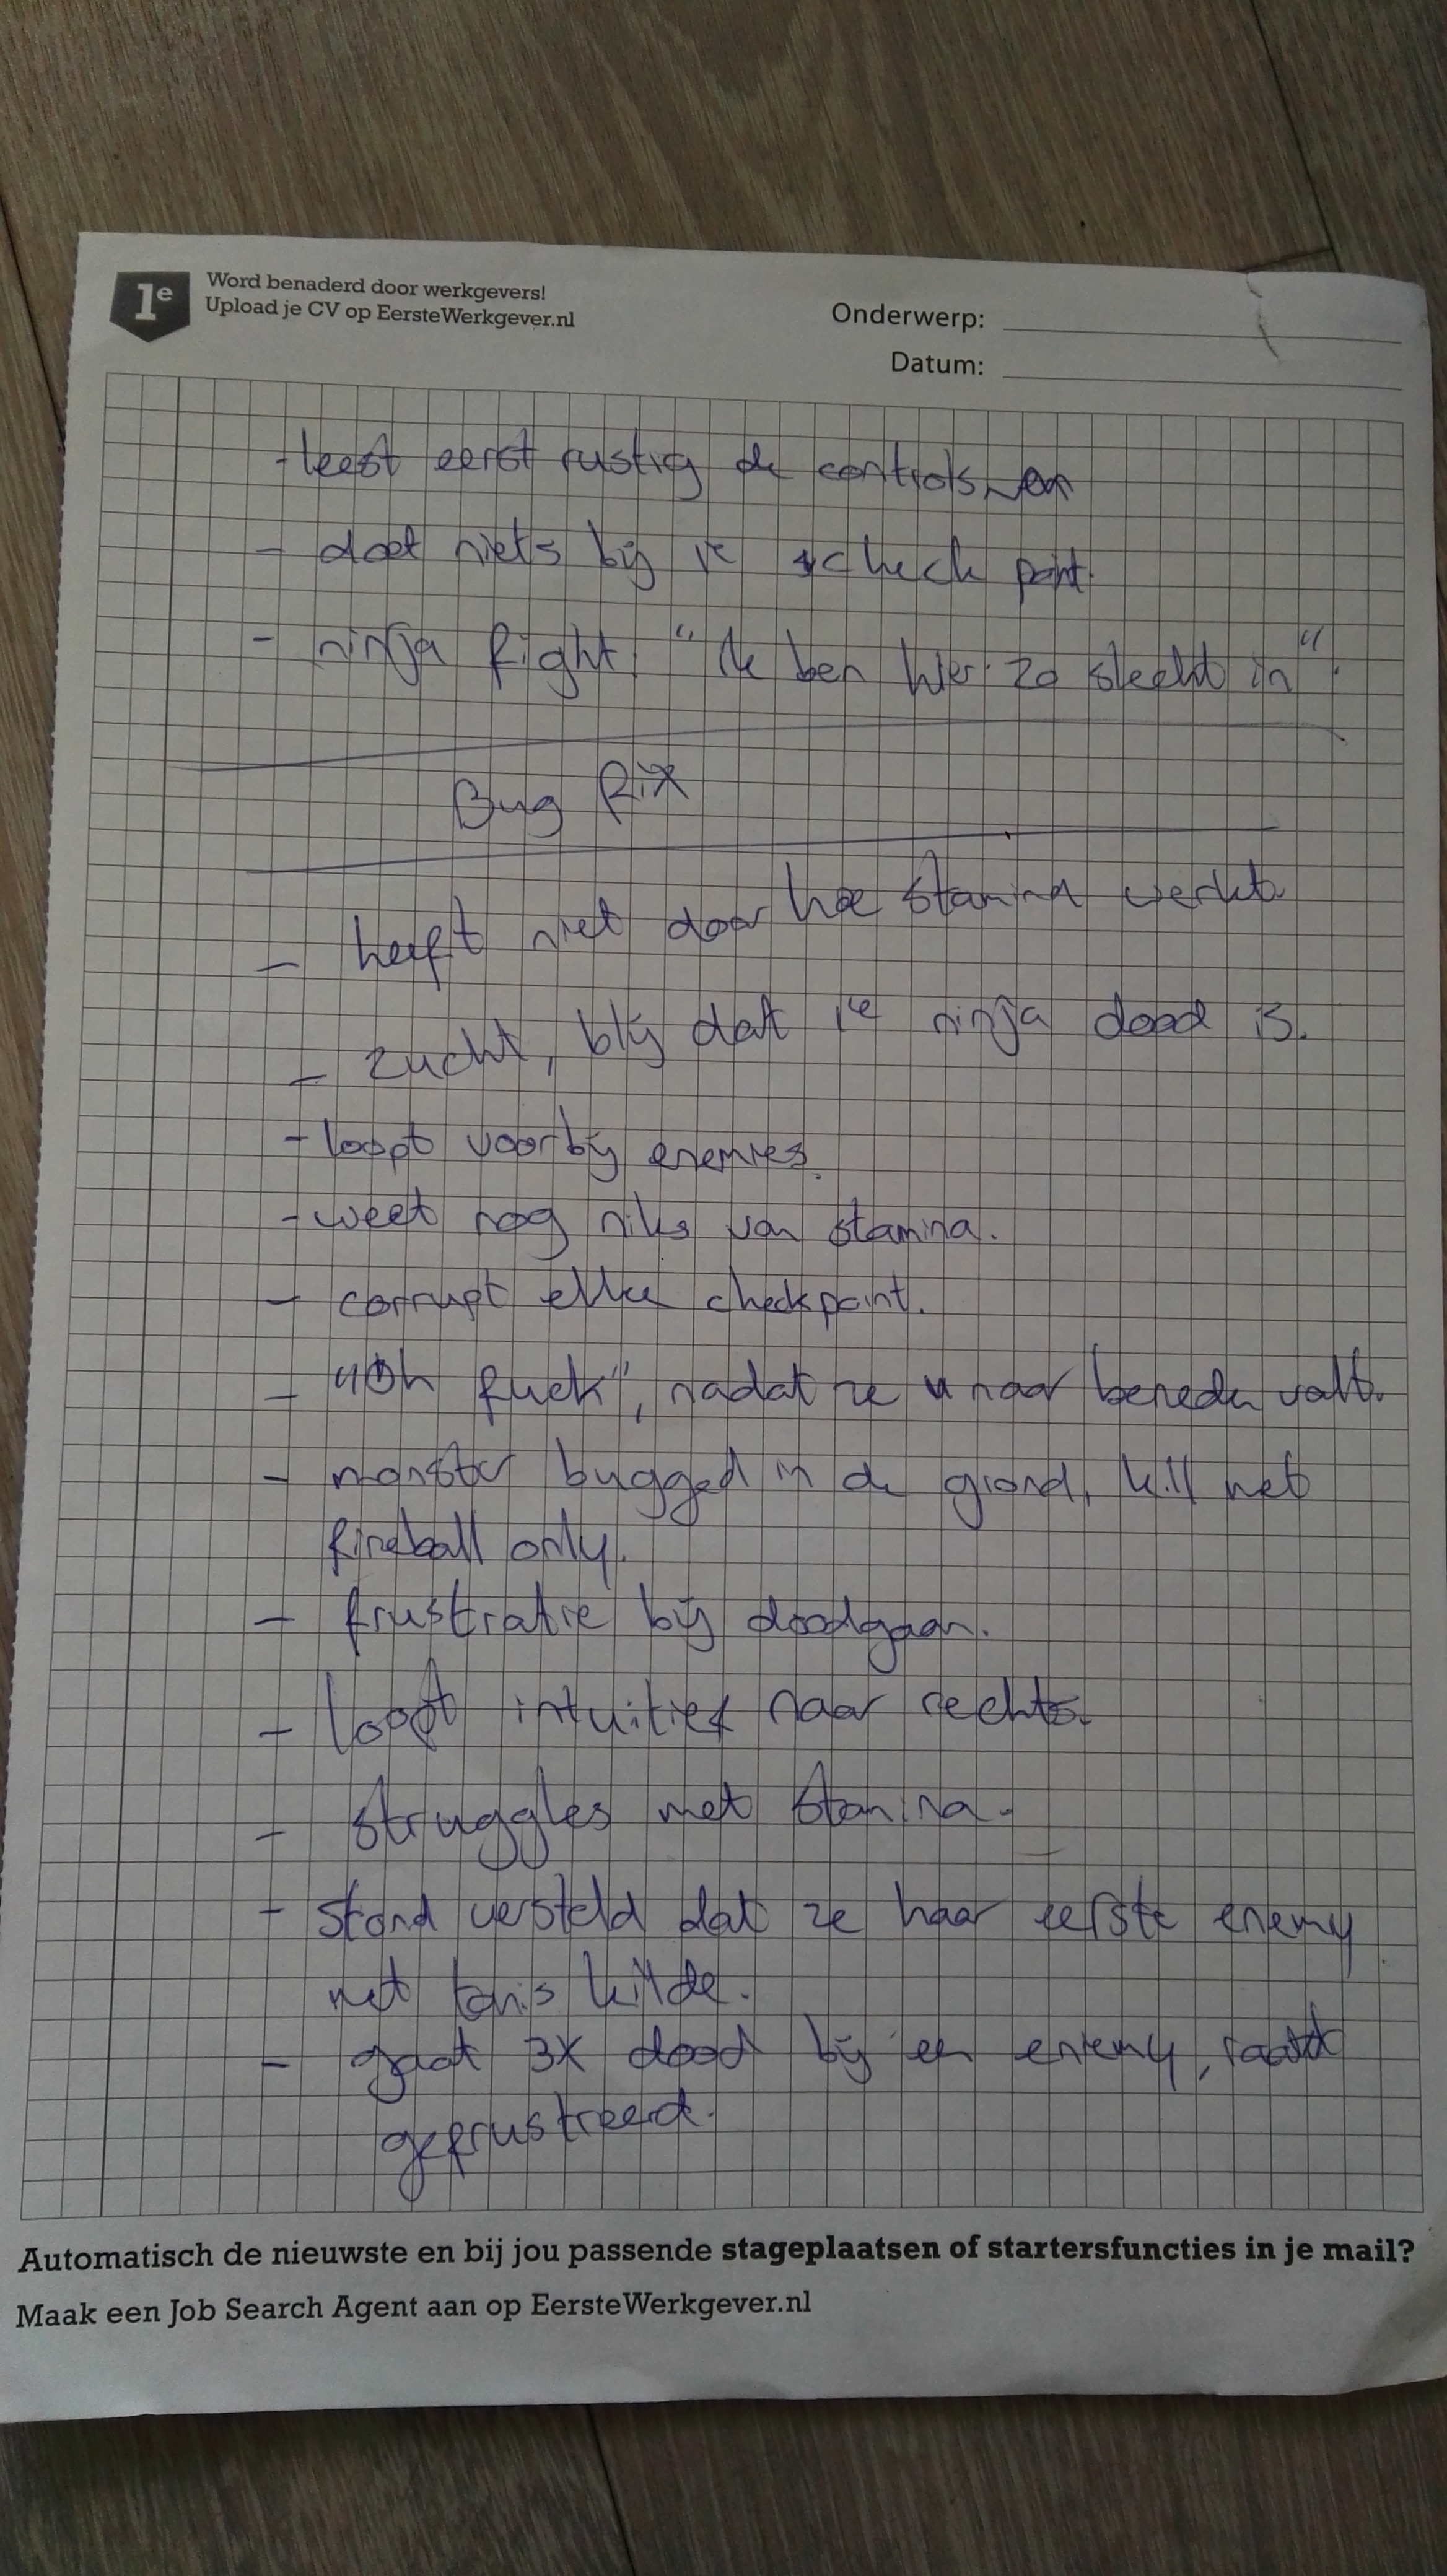 1e
Word benaderd door werkgevers!
Upload je CV op EersteWerkgever.nl
Onderwerp:
Datum:
- leest eerst rustig de controls
- doet niets bij 1e check point.
- ninja fight. "Ik ben hier zo slecht in".
Bug fix
- heeft niet door hoe stamina werkt.
- zucht, blij dat 1e ninja dood is.
- loopt voorbij enemies.
- weet nog niks van stamina.
- corrupt elke checkpoint.
- "Oh fuck", nadat ze naar beneden valt.
- monster bugged in de grond, kill met
fireball only.
- frustratie bij doodgaan.
- loopt intuitief naar rechts.
- struggles met stamina.
- stond versteld dat ze haar eerste enemy
met kilde.
- gaat 3x dood bij een enemy, raakt
gefrustreerd.
Automatisch de nieuwste en bij jou passende stageplaatsen of startersfuncties in je mail?
Maak een Job Search Agent aan op EersteWerkgever.nl